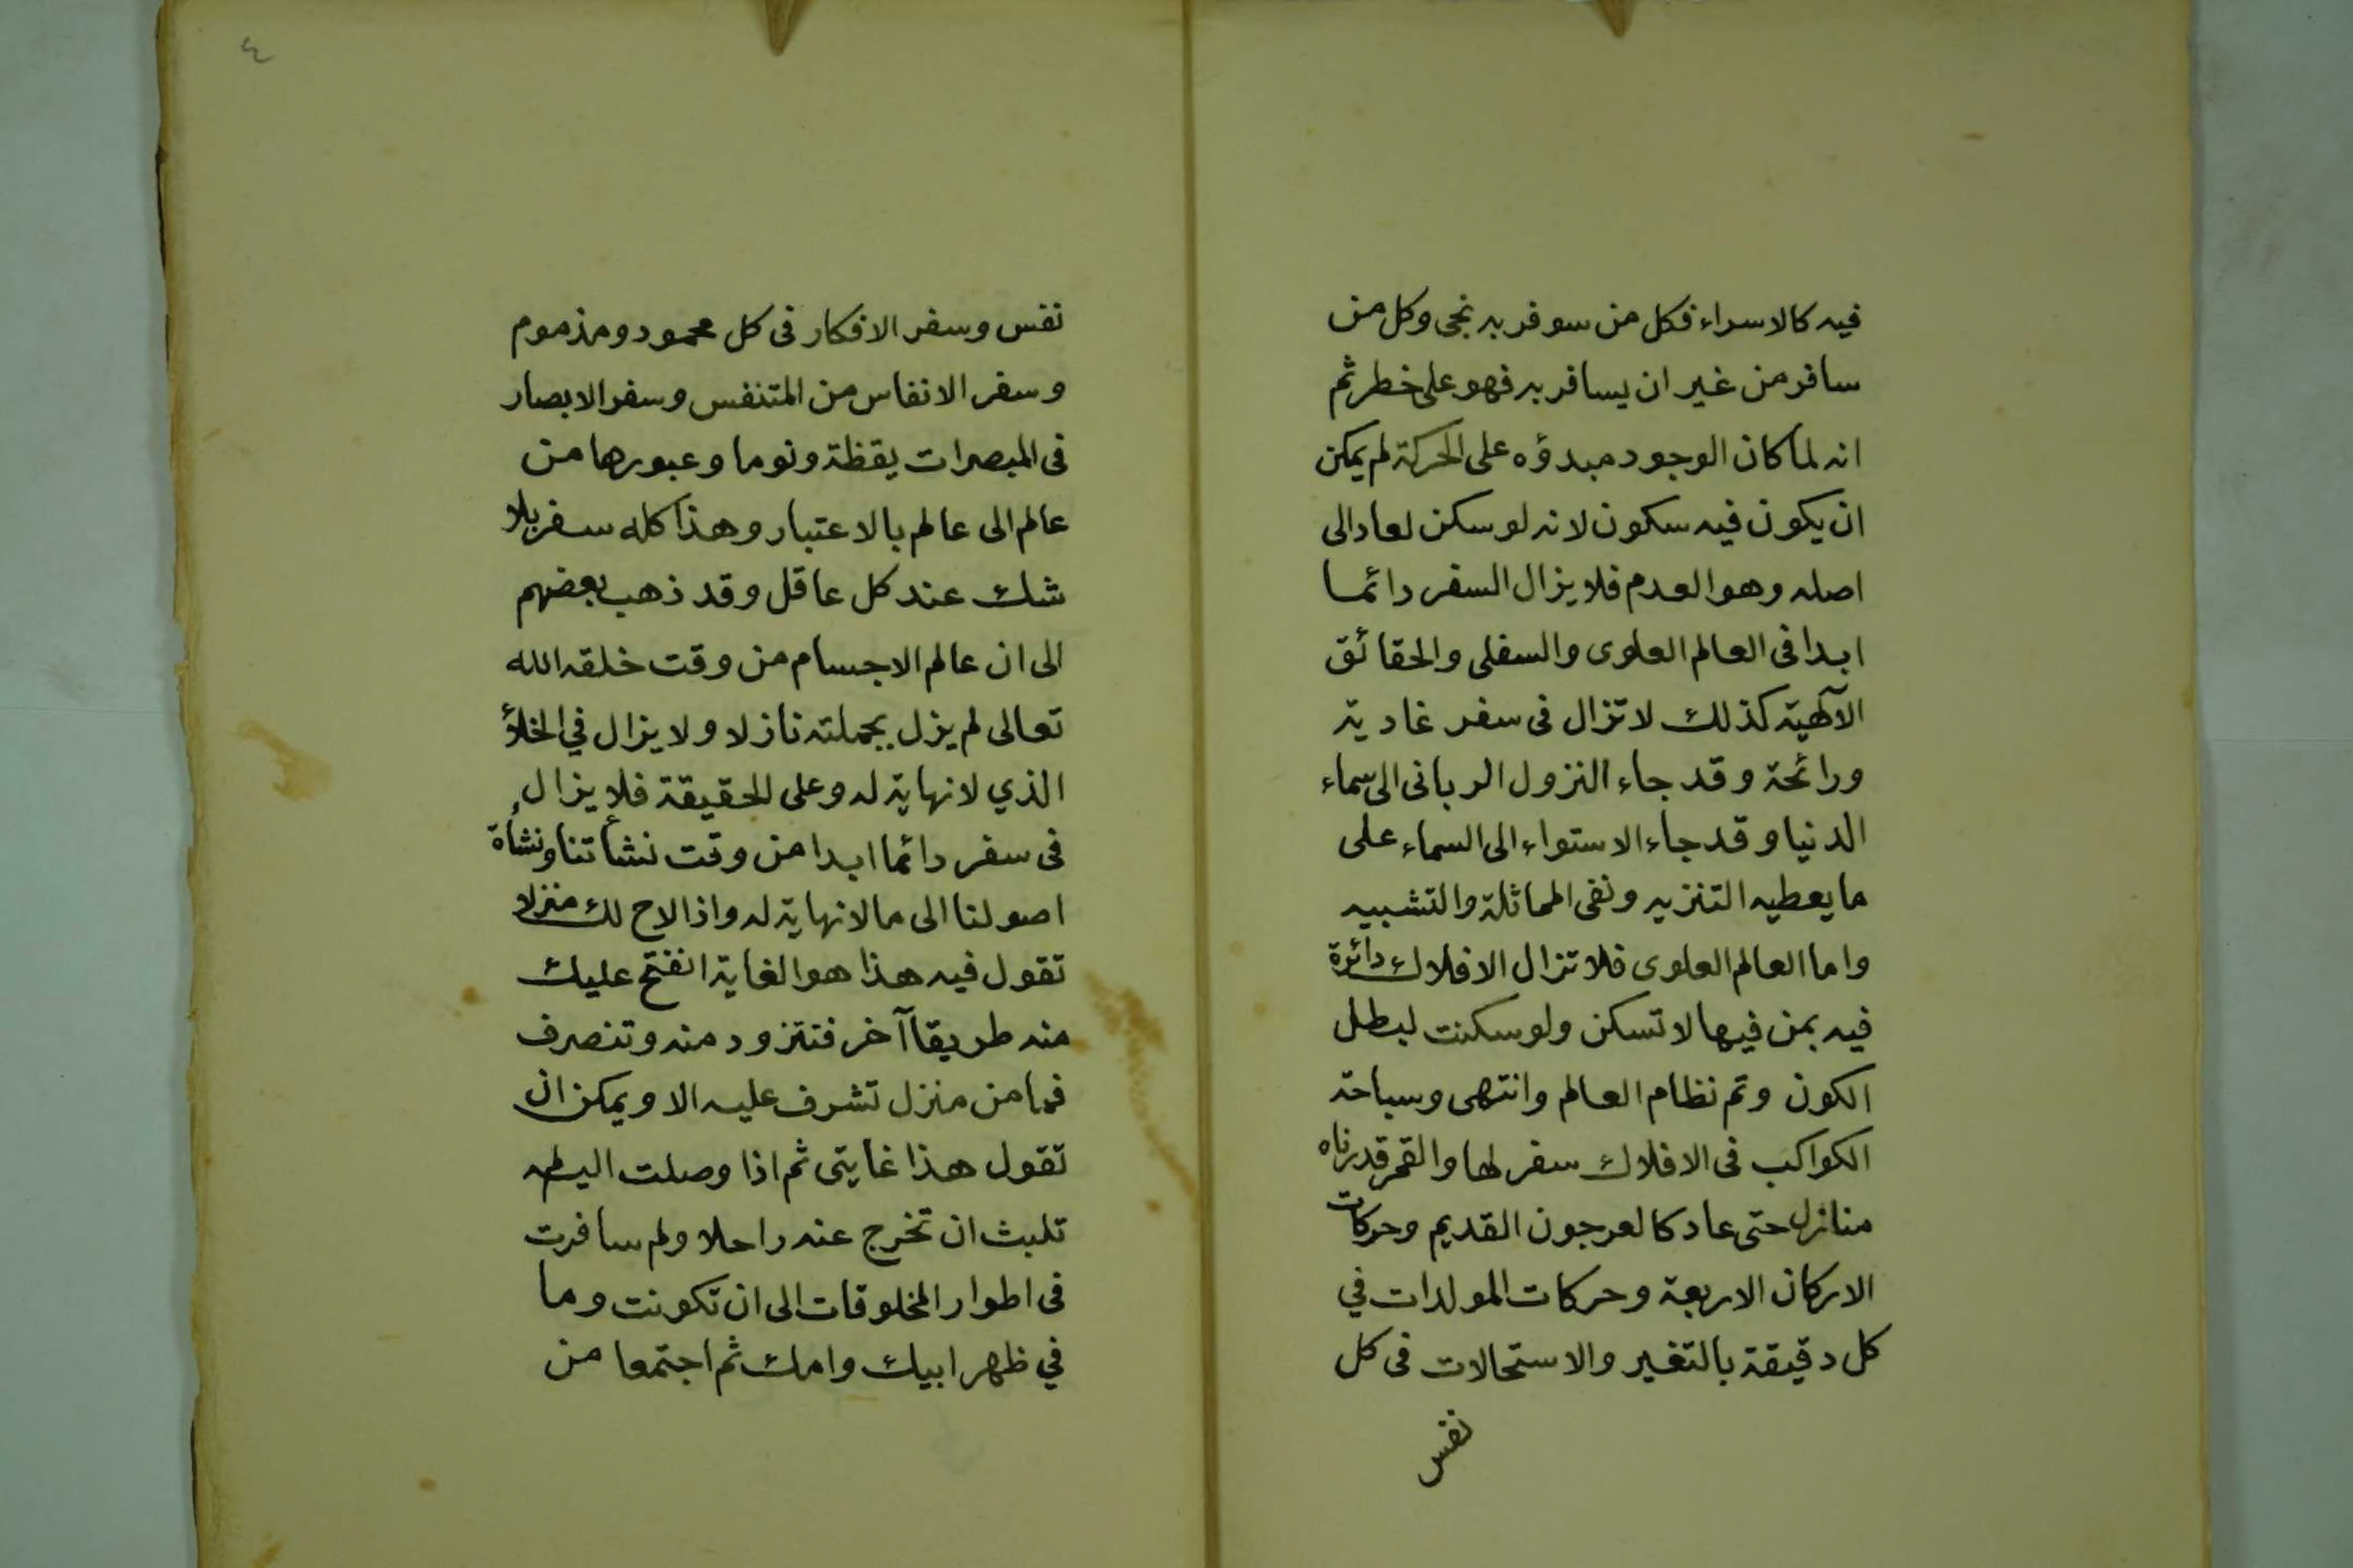 فيه كالاسراء فكل من سوفر به نجى وكل من
سافر من غير ان يسافر به فهو على خطر ثم
انه لما كان الوجود مبدؤه على الحركة لم يمكن
ان يكون فيه سكون لانه لو سكن لعاد الى
اصله وهو العدم فلا يزال السفر دائما
ابدا فى العالم العلوى والسفلى والحقائق
الآلهية كذلك لا تزال فى سفر غادية
ورائحة وقد جاء النزول الربانى الى سماء
الدنيا وقد جاء الاستواء الى السماء على
ما يعطيه التنزيه ونفى المماثلة والتشبيه
واما العالم العلوى فلا تزال الافلاك دائرة
فيه بمن فيها لا تسكن ولو سكنت لبطل
الكون وتم نظام العالم وانتهى وسباحة
الكواكب فى الافلاك سفر لها والقمر قدرناه
منازل حتى عاد كالعرجون القديم وحركات
الاركان الاربعة وحركات المولدات في
كل دقيقة بالتغير والاستحالات فى كل
نفس
٤
نفس وسفر الافكار فى كل محمود ومذموم
وسفر الانفاس من المتنفس وسفر الابصار
فى المبصرات يقظة ونوما وعبورها من
عالم الى عالم بالاعتبار وهذا كله سفر بلا
شك عند كل عاقل وقد ذهب بعضهم
الى ان عالم الاجسام من وقت خلقه الله
تعالى لم يزل بجملته نازلا ولا يزال في الخلاؤ
الذي لا نهاية له وعلى الحقيقة فلا يزال
فى سفر دائما ابدا من وقت نشأتنا ونشأة
اصولنا الى ما لا نهاية له واذا لاح لك منزلا
تقول فيه هذا هو الغاية انفتح عليك
منه طريقا آخر فتتزود منه وتنصرف
فما من منزل تشرف عليه الا ويمكن ان
تقول هذا غايتى ثم اذا وصلت اليه لم
تلبث ان تخرج عنه راحلا ولم سافرت
فى اطوار المخلوقات الى ان تكونت وما
في ظهر ابيك وامك ثم اجتمعا من